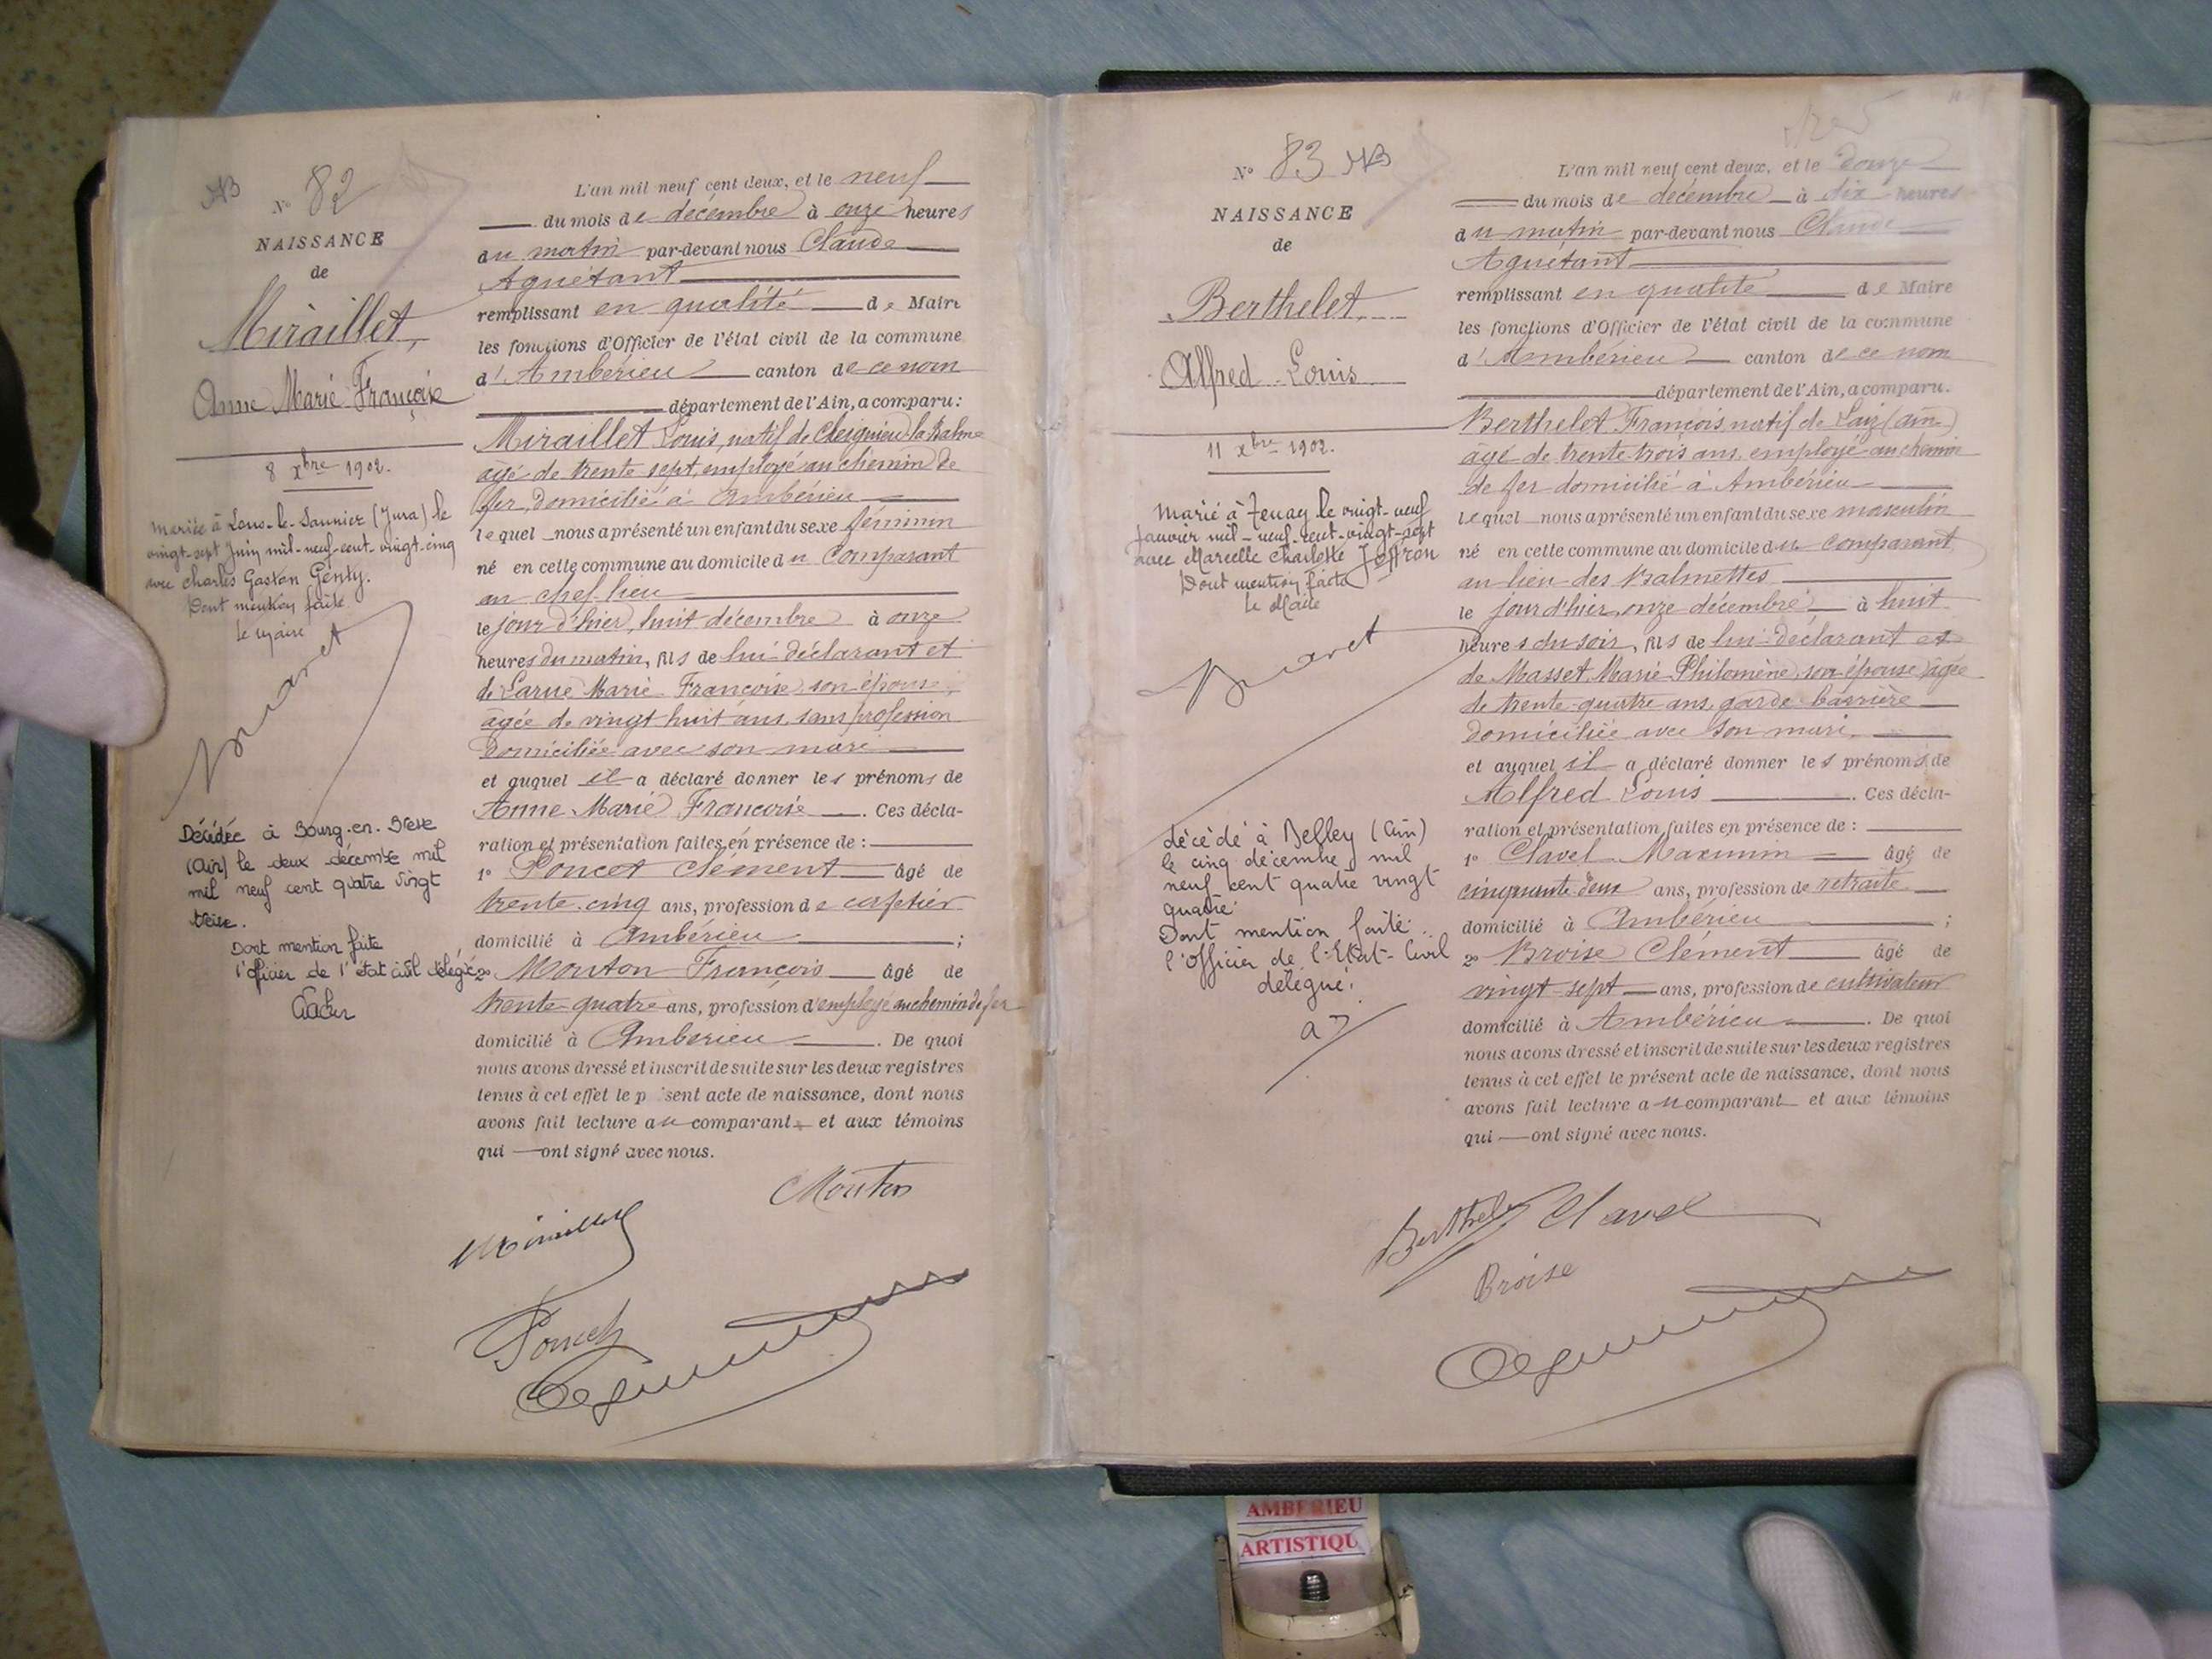 N° 82
NAISSANCE
de
Miraillet,
Anne Marie Françoise
8 xbre 1902.
Mariée à Lons-le-Saunier (Jura) le
vingt-sept Juin mil-neuf-cent-vingt-cinq
avec Charles Gaston Genty.
Dont mention faite
le Maire
Décédée à Bourg-en-Bresse
(Ain) le deux décembre mil
mil neuf cent quatre vingt
treize.
Dont mention faite
l'officier de l'état civil délégué
L'an mil neuf cent deux, et le neuf
du mois de décembre à onze heures
du matin par-devant nous Claude
Aguétant
remplissant en qualité de Maire
les fonctions d'Officier de l'état civil de la commune
d'Ambérieu canton de ce nom
département de l'Ain, a comparu:
Miraillet Louis, natif de Cheignieu-la-Balme
âgé de trente sept, employé au chemin de
fer, domicilié à Ambérieu
lequel nous a présenté un enfant du sexe féminin
né en cette commune au domicile du comparant
au chef lieu
le jour d'hier, huit décembre à onze
heures du matin, fils de lui déclarant et
de Larue Marie Françoise son épouse,
âgée de vingt huit ans, sans profession
domiciliée avec son mari
et auquel il a déclaré donner les prénoms de
Anne Marie Françoise. Ces décla-
ration et présentation faites en présence de :
1° Poncet Clément âgé de
trente-cinq ans, profession de cafetier
domicilié à Ambérieu ;
2° Mouton François âgé de
trente quatre ans, profession d'employé au chemin de fer
domicilié à Ambérieu. De quoi
nous avons dressé et inscrit de suite sur les deux registres
tenus à cet effet le p sent acte de naissance, dont nous
avons fait lecture au comparant et aux témoins
qui ont signé avec nous.
Mouton
Miraillet
Poncet
N° 83
NAISSANCE
de
Berthelet,
Alfred Louis
11 xbre 1902.
Marié à Tenay le vingt-neuf
Janvier mil-neuf-cent-vingt-sept
avec Marcelle Charlotte Joffron
Dont mention faite
le Maire
décédé à Belley (Ain)
le cinq décembre mil
neuf cent quatre vingt
quatre.
Dont mention faite.
l'Officier de l'Etat-Civil
délégué.
L'an mil neuf cent deux, et le douze
du mois de décembre à dix heures
du matin par-devant nous Claude
Aguétant
remplissant en qualité de Maire
les fonctions d'Officier de l'état civil de la commune
d'Ambérieu canton de ce nom
département de l'Ain, a comparu.
Berthelet François natif de Laiz (ain)
âgé de trente-trois ans employé au chemin
de fer domicilié à Ambérieu
lequel nous a présenté un enfant du sexe masculin
né en cette commune au domicile du comparant
au lieu des Balmettes
le jour d'hier, onze décembre à huit
heures du soir, fils de lui déclarant et
de Masset Marie Philomène, son épouse âgée
de trente-quatre ans, garde-barrière
domiciliée avec son mari,
et auquel il a déclaré donner les prénoms de
Alfred Louis. Ces décla-
ration et présentation faites en présence de :
1° Clavel Maximin âgé de
cinquante deux ans, profession de retraité
domicilié à Ambérieu ;
2° Broise Clément âgé de
vingt sept ans, profession de cultivateur
domicilié à Ambérieu. De quoi
nous avons dressé et inscrit de suite sur les deux registres
tenus à cet effet le présent acte de naissance, dont nous
avons fait lecture au comparant et aux témoins
qui ont signé avec nous.
Berthelet Clavel
Broise
AMBERIEU
ARTISTIQU